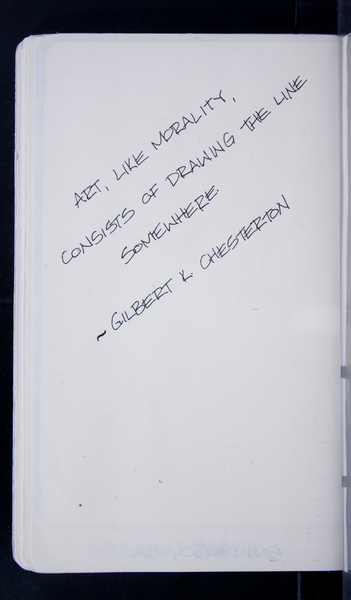 ART, LIKE MORALITY,
CONSISTS OF DRAWING THE LINE
SOMEWHERE.
~ GILBERT K CHESTERTON